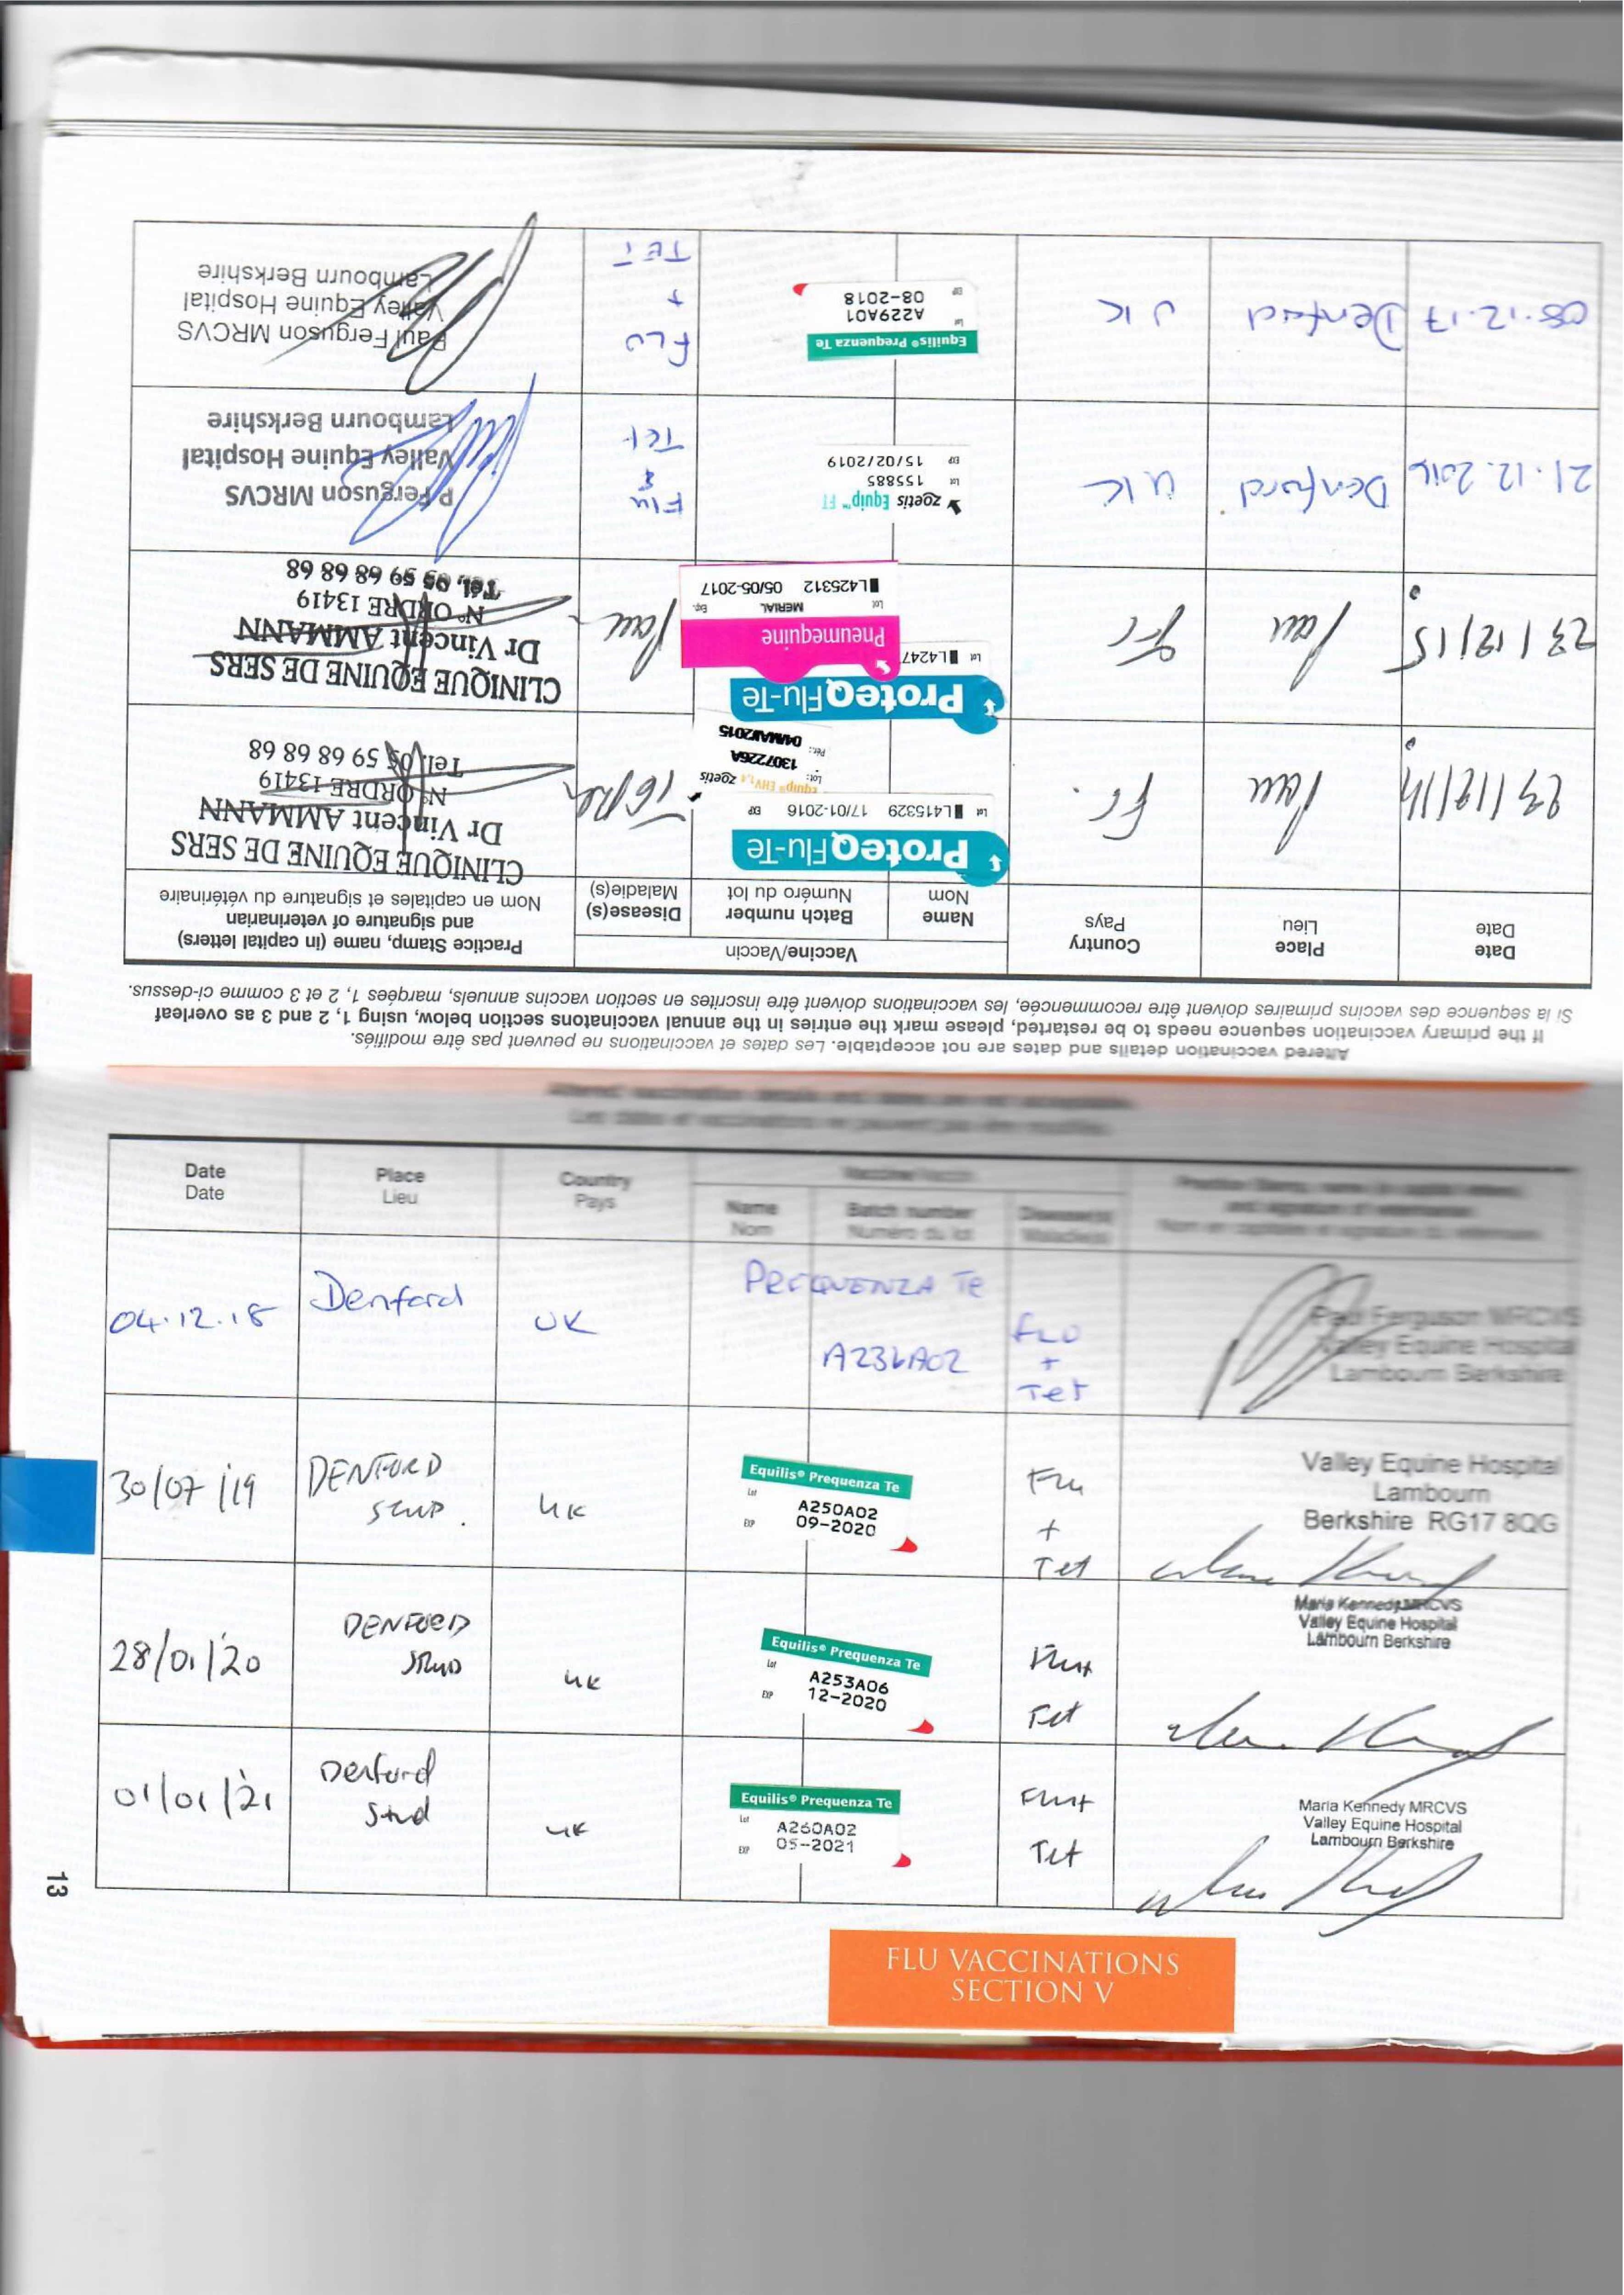 Altered vaccination details and dates are not acceptable. Les dates et vaccinations ne peuvent pas être modifiés.
If the primary vaccination sequence needs to be restarted, please mark the entries in the annual vaccinatons section below, using 1, 2 and 3 as overleaf
Si la sequence des vaccins primaires doivent être recommencée, les vaccinations doivent être inscrites en section vaccins annuels, marqées 1, 2 et 3 comme ci-dessus.
Date
Date
Place
Lieu
Country
Pays
Vaccine/Vaccin
Name
Nom
Batch number
Numéro du lot
Disease(s)
Maladie(s)
Practice Stamp, name (in capital letters)
and signature of veterinarian
Nom en capitales et signature du vétérinaire
23/12/14
Pau
Fr.
ProteqFlu-Te
Lot L415329 17/01-2016 EXP
Equip® EHV1,4 zoetis
Lot: 1307226A
Pér.: 04MAR2015
CLINIQUE EQUINE DE SERS
Dr Vincent AMMANN
N° ORDRE 13419
Tel. 05 59 68 68 68
23/12/15
Pau
Fr
ProteqFlu-Te
Lot L4247
Pneumequine
Lot MERIAL Exp.
L425312 05/05-2017
CLINIQUE EQUINE DE SERS
Dr Vincent AMMANN
N° ORDRE 13419
Tél. 05 59 68 68 68
21.12.2016
Denford
UK
zoetis Equip™ FT
Lot 155885
EXP 15/02/2019
Flu
&
Tet
P Ferguson MRCVS
Valley Equine Hospital
Lambourn Berkshire
08.12.17
Denford
UK
Equilis® Prequenza Te
Lot A229A01
EXP 08-2018
FLU
+
TET
Paul Ferguson MRCVS
Valley Equine Hospital
Lambourn Berkshire
Altered vaccination details and dates are not acceptable.
Les dates et vaccinations ne peuvent pas être modifiés.
Date
Date
Place
Lieu
Country
Pays
Vaccine/Vaccin
Name
Nom
Batch number
Numéro du lot
Disease(s)
Maladie(s)
Practice Stamp, name (in capital letters)
and signature of veterinarian
Nom en capitales et signature du vétérinaire
04.12.18
Denford
UK
PREQUENZA Te
A236A02
FLU
+
Tet
Paul Ferguson MRCVS
Valley Equine Hospital
Lambourn Berkshire
30/07/19
DENFORD
STUD.
UK
Equilis® Prequenza Te
Lot A250A02
EXP 09-2020
Flu
+
Tet
Valley Equine Hospital
Lambourn
Berkshire RG17 8QG
28/01/20
DENFORD
STUD
UK
Equilis® Prequenza Te
Lot A253A06
EXP 12-2020
Flu+
Tet
Maria Kennedy MRCVS
Valley Equine Hospital
Lambourn Berkshire
01/01/21
Denford
Stud
UK
Equilis® Prequenza Te
Lot A260A02
EXP 05-2021
Flu+
Tet
Maria Kennedy MRCVS
Valley Equine Hospital
Lambourn Berkshire
13
FLU VACCINATIONS
SECTION V